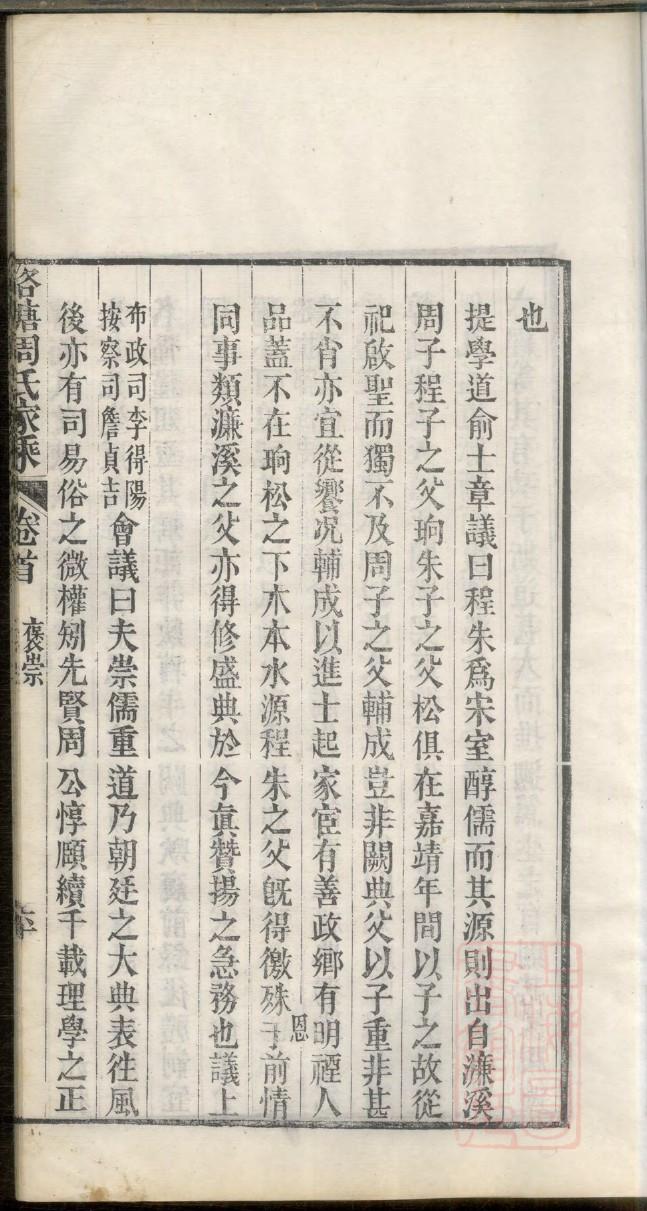 也
提學道俞士章議曰程朱爲宋室醇儒而其源則出自濂溪
周子程子之父珦朱子之父松俱在嘉靖年間以子之故從
祀啟聖而獨不及周子之父輔成豈非闕典父以子重非甚
不肖亦宜從饗况輔成以進士起家宦有善政鄉有明禋人
品蓋不在珦松之下木本水源程朱之父旣得徼殊恩于前情
同事類濂溪之父亦得修盛典於今眞贊揚之急務也議上
布政司李得陽
按察司詹貞吉
會議曰夫崇儒重道乃朝廷之大典表徃風
後亦有司易俗之微權矧先賢周公惇頤續千載理學之正
周氏家乘 卷首 褒崇